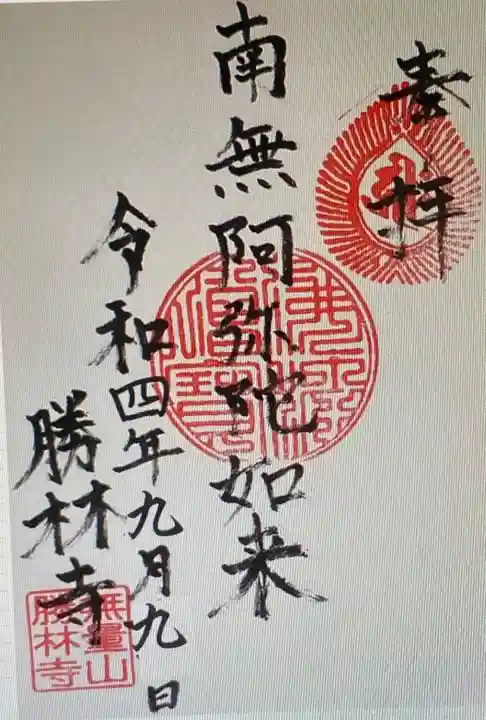 奉拝
南無阿弥陀如来
令和四年九月九日
勝林寺
無量山
勝林寺